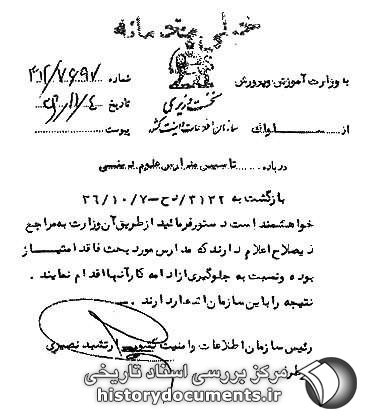 خیلی محرمانه
به وزارت آموزش وپرورش
شماره ۳۱۲/۷۶۹۲
نخست وزیری
تاریخ
از ساواك
سازمان اطلاعات و امنیت کشور
پیوست
درباره تاسیس مدارس علوم دینی
بازگشت به ۳۱۲۲/دح-۳۶/۱۰/۷
خواهشمند است دستور فرمائید ازطریق آن وزارت به مراجع
ذیصلاح اعلام دارند که مدارس مورد بحث فاقد امتیاز
بوده ونسبت به جلوگیری ازادامه کار آنها اقدام نمایند .
نتیجه را باین سازمان اعلام دارند .
رئیس سازمان اطلاعات وامنیت کشور . ارتشبد نصیری
مرکز بررسی اسناد تاریخی
historydocuments.ir